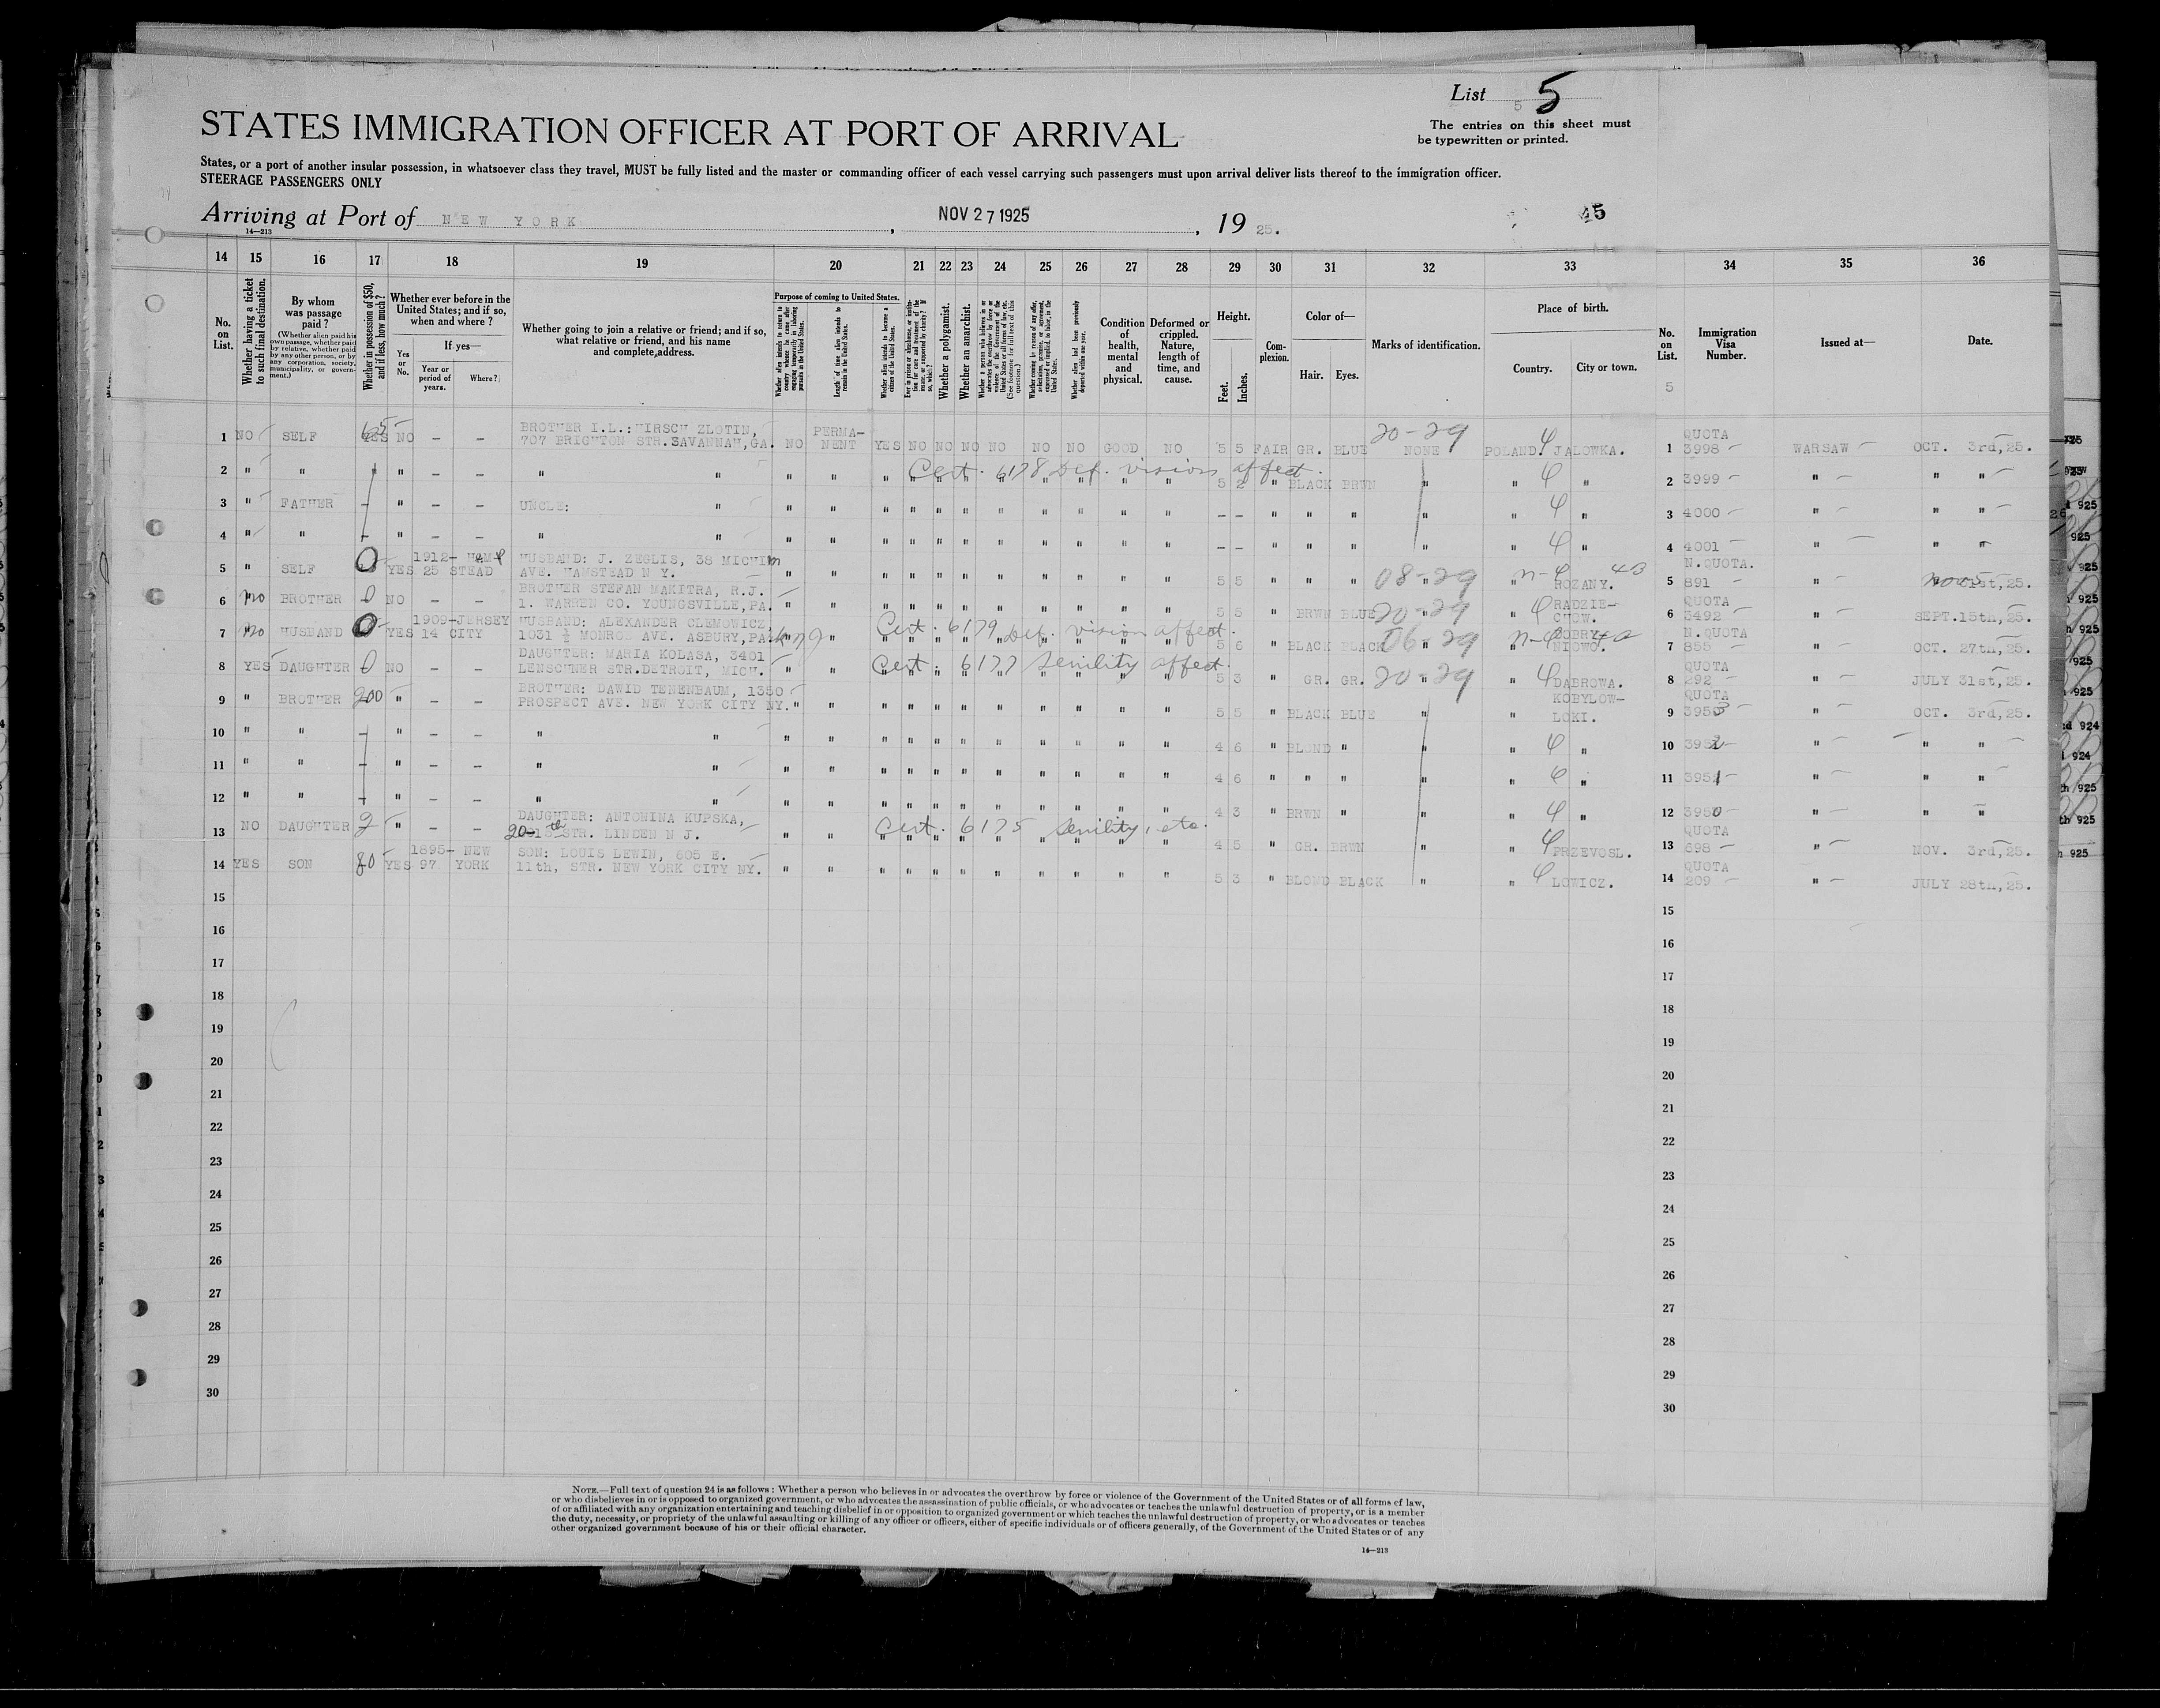 List 5 5
The entries on this sheet must
be typewritten or printed.
STATES IMMIGRATION OFFICER AT PORT OF ARRIVAL
States, or a port of another insular possession, in whatsoever class they travel, MUST be fully listed and the master or commanding officer of each vessel carrying such passengers must upon arrival deliver lists thereof to the immigration officer.
STEERAGE PASSENGERS ONLY
Arriving at Port of NEW YORK, NOV 27 1925, 19 25. 45
14—213
14 15 16 17 18 19 20 21 22 23 24 25 26 27 28 29 30 31 32 33 34 35 36
No. on List.
Whether having a ticket to such final destination.
By whom was passage paid?
(Whether alien paid his own passage, whether paid by relative, whether paid by any other person, or by any corporation, society, municipality, or government.)
Whether in possession of $50, and if less, how much?
Whether ever before in the United States; and if so, when and where?
Yes or No.
If yes—
Year or period of years.
Where?
Whether going to join a relative or friend; and if so, what relative or friend, and his name and complete address.
Purpose of coming to United States.
Whether alien intends to return to country whence he came after engaging temporarily in laboring pursuits in the United States.
Length of time alien intends to remain in the United States.
Whether alien intends to become a citizen of the United States.
Whether a polygamist.
Whether an anarchist.
Condition of health, mental and physical.
Deformed or crippled. Nature, length of time, and cause.
Height.
Feet.
Inches.
Complexion.
Color of—
Hair.
Eyes.
Marks of identification.
Place of birth.
Country.
City or town.
No. on List.
5
Immigration Visa Number.
Issued at—
Date.
1 NO SELF YES 65 NO – – BROTHER I.L.:HIRSCH ZLOTIN, 707 BRIGHTON STR.SAVANNAH,GA. NO PERMANENT YES NO NO NO NO NO NO GOOD NO 5 5 FAIR GR. BLUE 20-29 NONE POLAND. JALOWKA. 1 QUOTA 3998 WARSAW OCT. 3rd,25.
2 " " " – – " " " " " Cert. 6178 Def. vision affect. 5 2 " BLACK BRWN " " " 2 3999 " " "
3 " FATHER – " – – UNCLE: " " " " " " " " " " " " – – " " " " " " 3 4000 " " "
4 " " – " – – " " " " " " " " " " " " " – – " " " " " " 4 4001 " " "
5 " SELF 0 YES 1912-25 HEMPSTEAD HUSBAND: J. ZEGLIS, 38 MICHIM AVE. HAMSTEAD N Y. " " " " " " " " " " " 5 5 " " " 08-29 " ROZANY. 5 N.QUOTA. 891 " 1st,25.
6 no BROTHER 0 NO – – BROTHER STEFAN MAKITRA, R.J. 1. WARREN CO. YOUNGSVILLE,PA. " " " " " " " " " " " 5 5 " BRWN BLUE 20-29 " RADZIECHOW. 6 QUOTA 3492 " SEPT.15th,25.
7 no HUSBAND 0 YES 1909-14 JERSEY CITY HUSBAND: ALEXANDER CLEMOWICZ, 1031 ½ MONROE AVE. ASBURY,PARK NJ " " Cert. 6179 Def. vision affect. 5 6 " BLACK BLACK 06-29 " DOBRYNIOWO. 7 N.QUOTA 855 " OCT. 27th,25.
8 YES DAUGHTER 0 NO – – DAUGHTER: MARIA KOLASA, 3401 LENSCHNER STR.DETROIT, MICH. " " Cert. 6177 Senility affect. 5 3 " GR. GR. 20-29 " DABROWA. 8 QUOTA 292 " JULY 31st,25.
9 " BROTHER 200 " – – BROTHER: DAWID TENENBAUM, 1350 PROSPECT AVE. NEW YORK CITY NY. " " " " " " " " " " " 5 5 " BLACK BLUE " " KOBYLOWLOKI. 9 QUOTA 3953 " OCT. 3rd,25.
10 " " – " – – " " " " " " " " " " " " " 4 6 " BLOND " " " " 10 3952 " " "
11 " " – " – – " " " " " " " " " " " " " 4 6 " " " " " " 11 3951 " " "
12 " " – " – – " " " " " " " " " " " " " 4 3 " BRWN " " " " 12 3950 " " "
13 NO DAUGHTER 2 " – – DAUGHTER: ANTONINA KUPSKA, 20-13th STR. LINDEN N J. " " Cert. 6175 Senility, etc. 4 5 " GR. BRWN " " PRZEVOSL. 13 QUOTA 698 " NOV. 3rd,25.
14 YES SON 80 YES 1895-97 NEW YORK SON: LOUIS LEWIN, 605 E. 11th, STR. NEW YORK CITY NY. " " " " " " " " " " " 5 3 " BLOND BLACK " " LOWICZ. 14 QUOTA 209 " JULY 28th,25.
15 15
16 16
17 17
18 18
19 19
20 20
21 21
22 22
23 23
24 24
25 25
26 26
27 27
28 28
29 29
30 30
NOTE.—Full text of question 24 is as follows: Whether a person who believes in or advocates the overthrow by force or violence of the Government of the United States or of all forms of law,
or who disbelieves in or is opposed to organized government, or who advocates the assassination of public officials, or who advocates or teaches the unlawful destruction of property, or is a member
of or affiliated with any organization entertaining and teaching disbelief in or opposition to organized government or which teaches the unlawful destruction of property, or who advocates or teaches
the duty, necessity, or propriety of the unlawful assaulting or killing of any officer or officers, either of specific individuals or of officers generally, of the Government of the United States or of any
other organized government because of his or their official character.
14—213